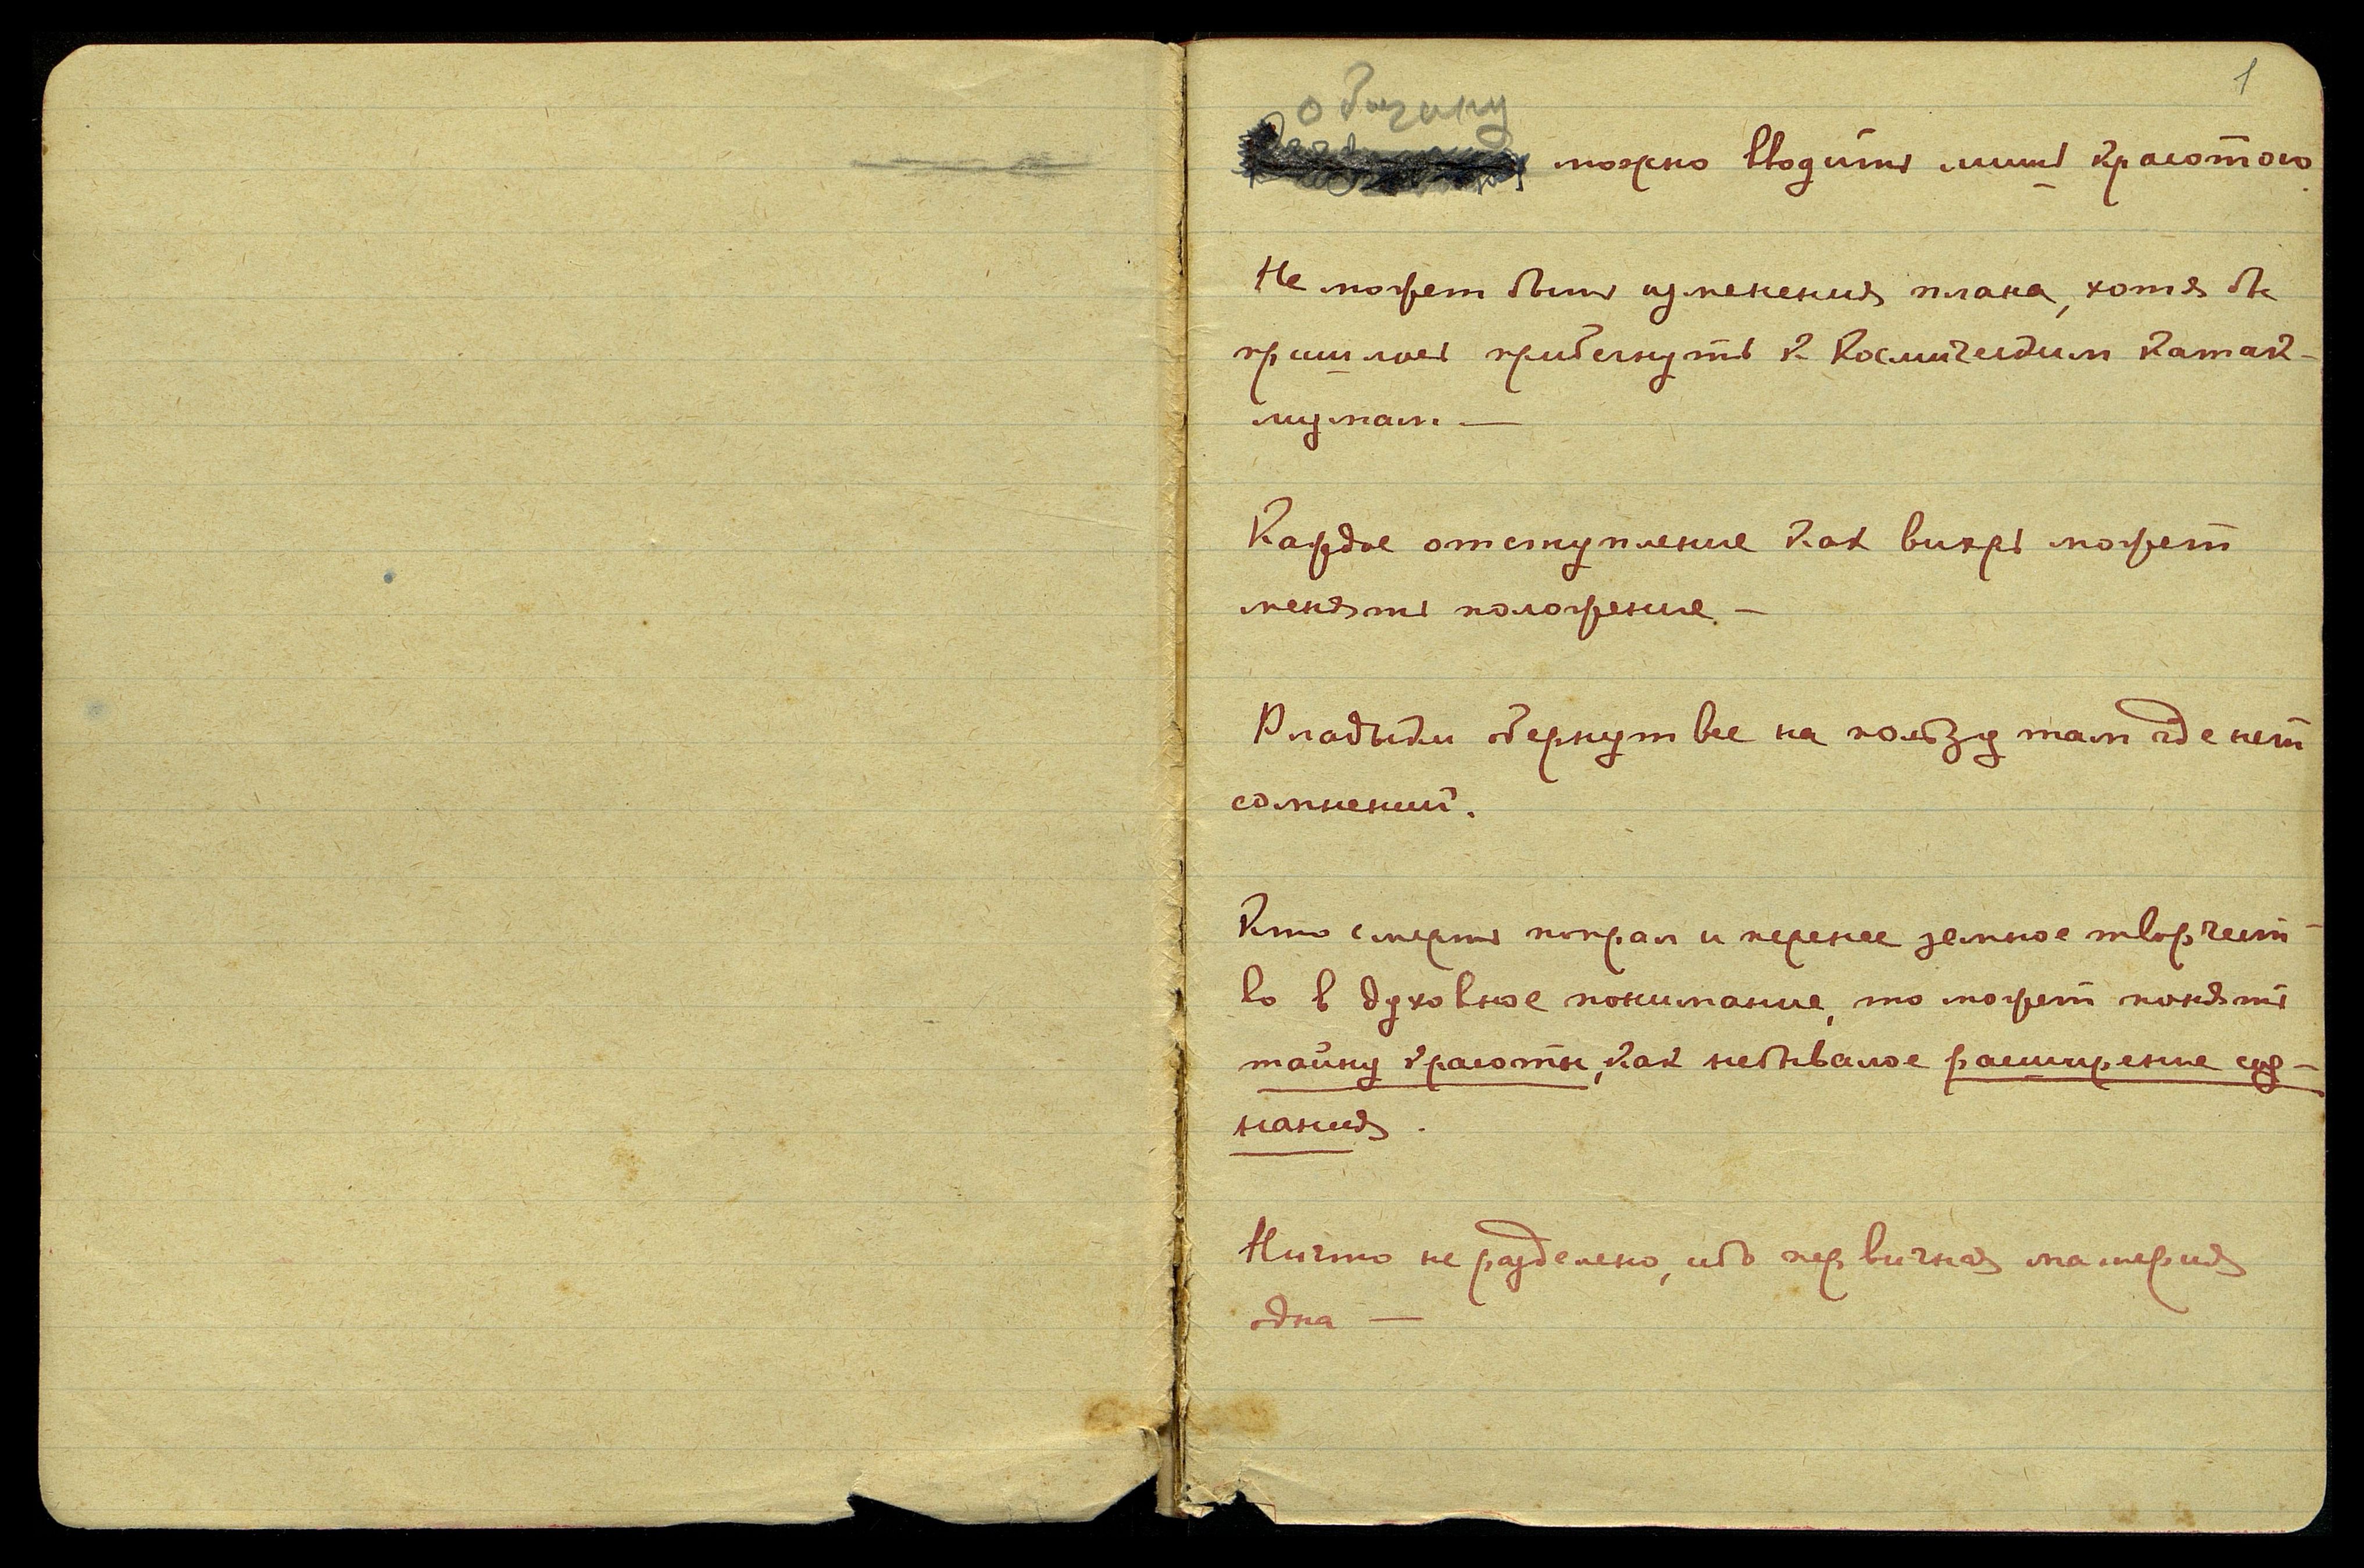 1
общину
можно вводить лишь красотою.
Не может быть изменения плана, хотя бы
пришлось прибегнуть к космическим катак-
лизмам —
Каждое отступление как вихрь может
менять положение. —
Владыки обернут все на пользу там где нет
сомнений.
Кто смерть попрал и перенес земное творчест-
во в духовное понимание, то может понять
тайну красоты, как небывалое расширение соз-
нания.
Ничто не разделено, ибо первичная материя
одна —